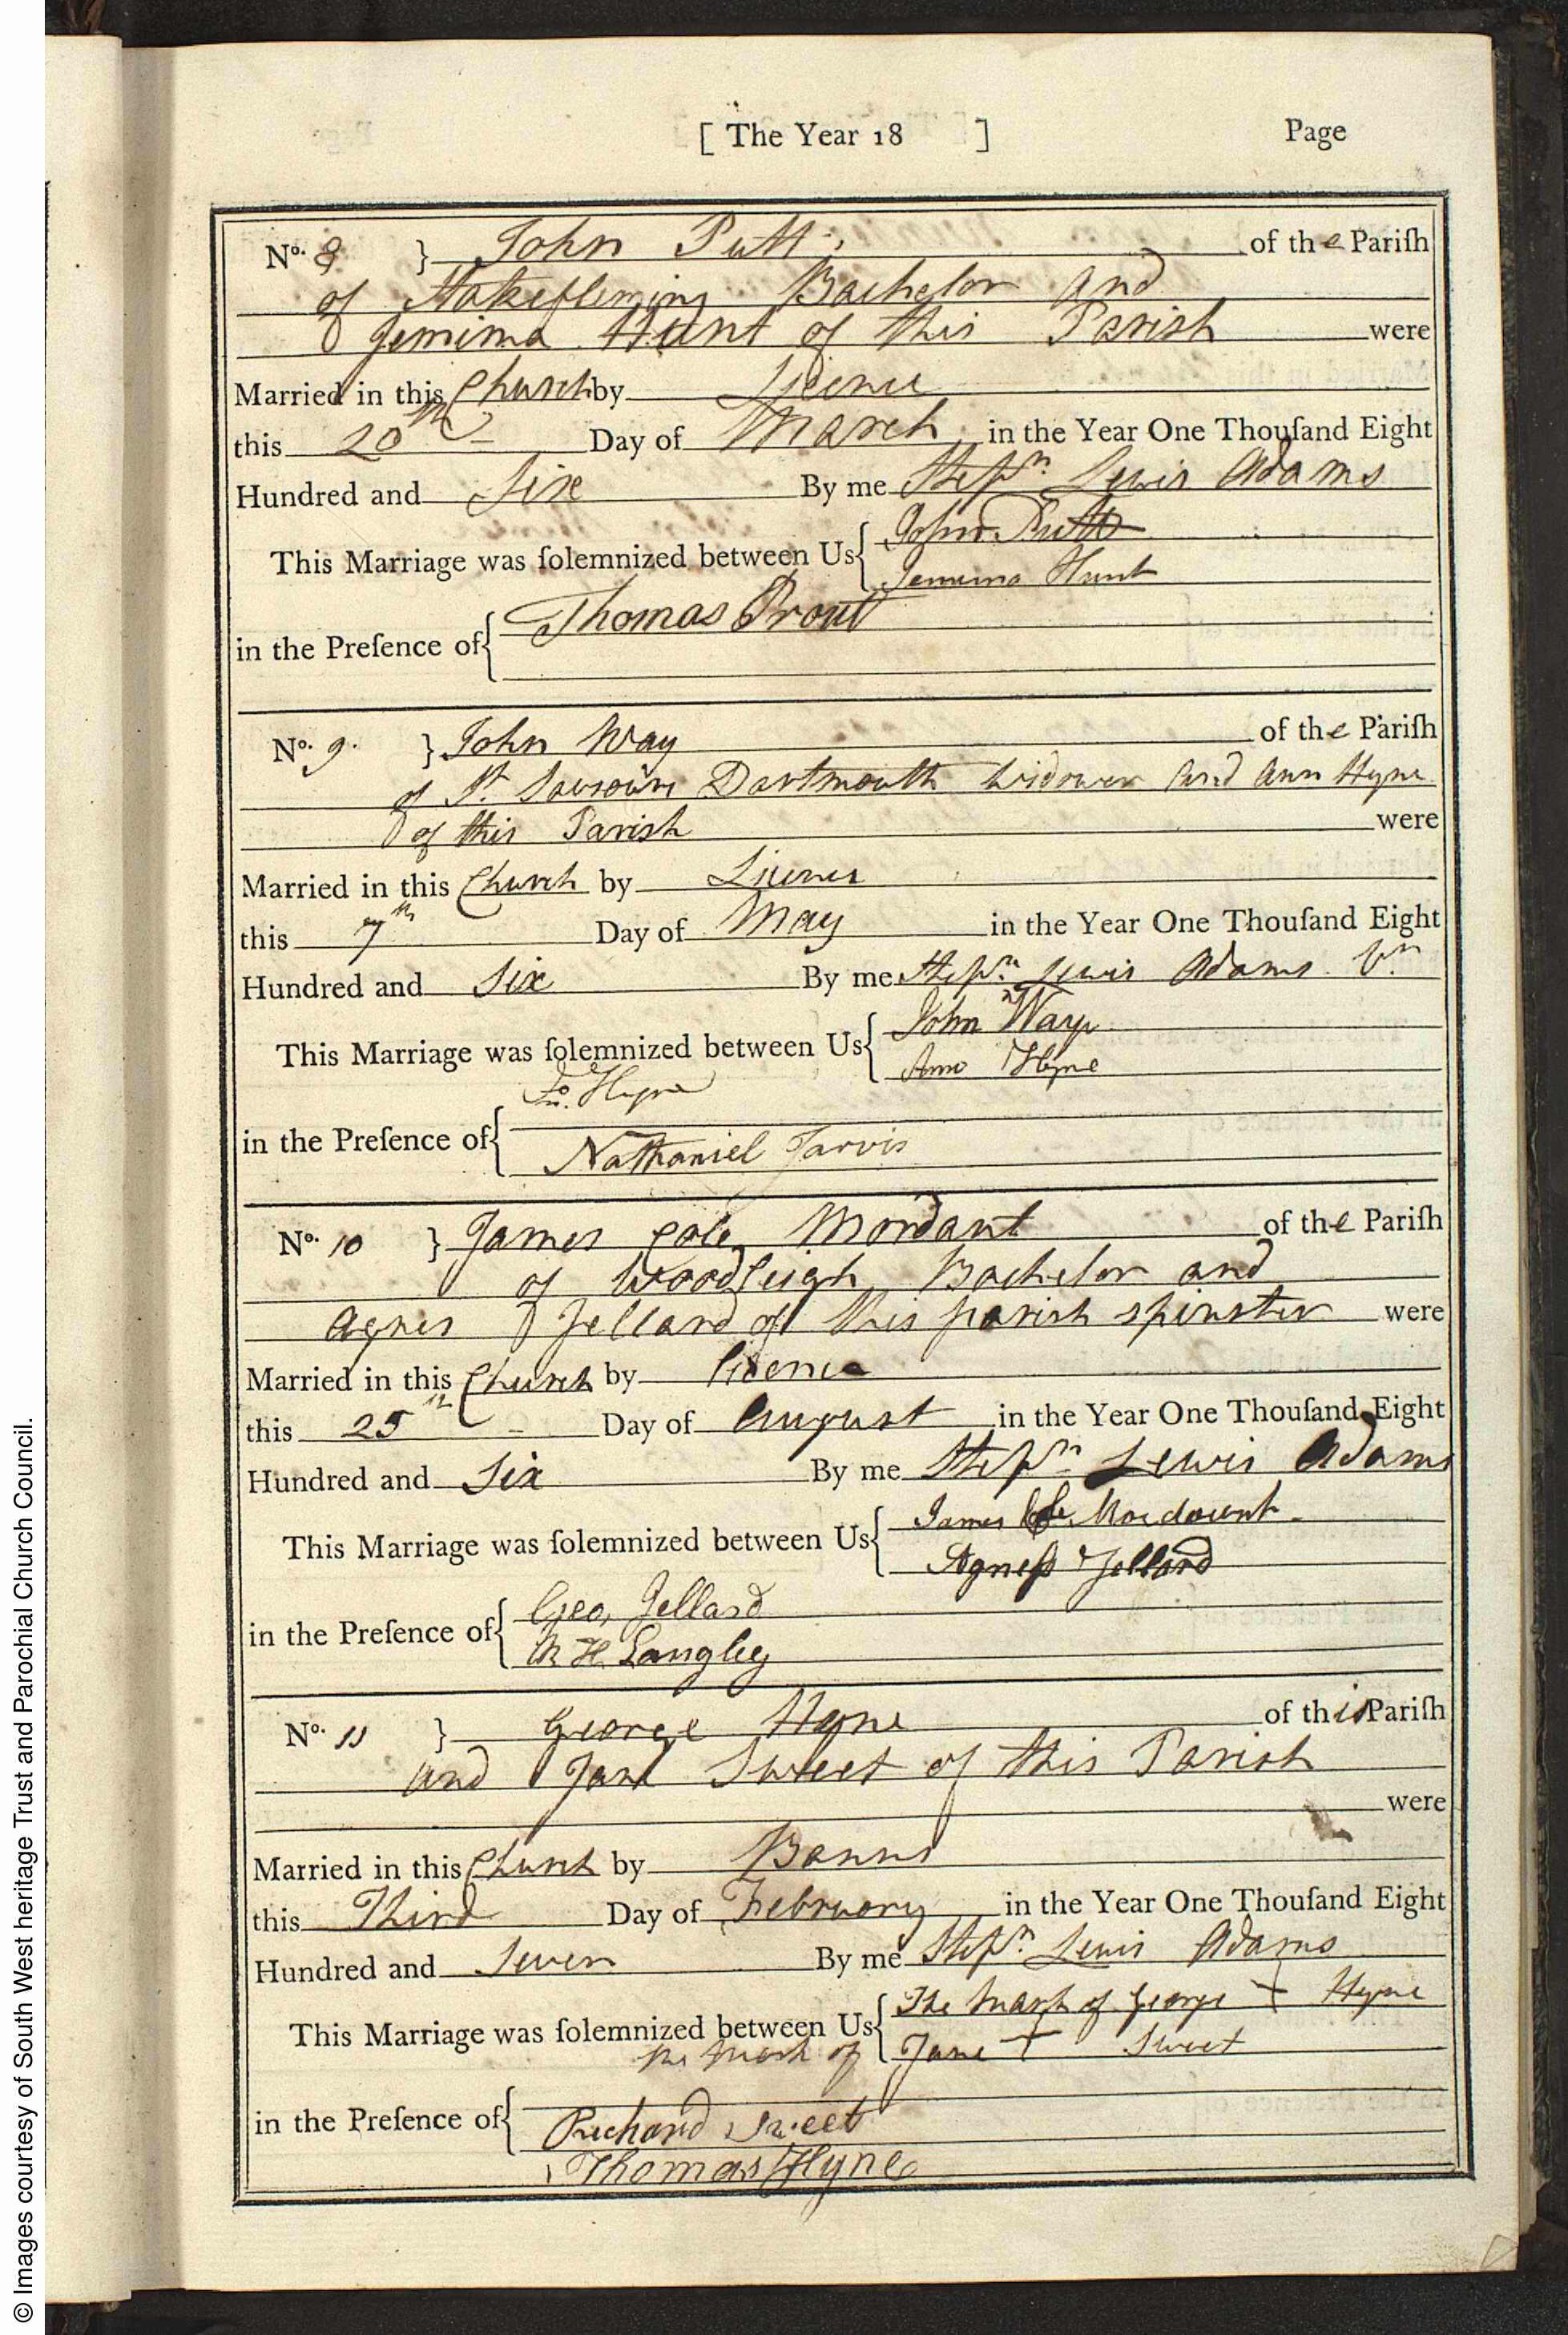 [ The Year 18 ] Page
No. 8 } John Putt of the Pariſh
of Stokefleming Bachelor And
Jemima Hunt of this Parish were
Married in this Church by Licence
this 20th Day of March in the Year One Thouſand Eight
Hundred and Six By me Stepn. Lewis Adams
This Marriage was ſolemnized between Us { John Putt
Jemima Hunt
in the Preſence of { Thomas Prout
No. 9. } John Way of the Pariſh
of St. Saviours Dartmouth Widower And Ann Hyne
of this Parish were
Married in this Church by Licence
this 7th Day of May in the Year One Thouſand Eight
Hundred and Six By me Stepn. Lewis Adams
This Marriage was ſolemnized between Us { John Way
Ann Hyne
Hyne
in the Preſence of {
Nathaniel Jarvis
No. 10 } James Cole Mordant of the Pariſh
of Woodleigh Bachelor and
Agnes Jellard of this parish spinster were
Married in this Church by licence
this 25th Day of August in the Year One Thouſand Eight
Hundred and Six By me Stepn. Lewis Adams
This Marriage was ſolemnized between Us { James Cole Mordaunt
Agneſs Jellard
in the Preſence of { Geo. Jellard
H Langley
No. 11 } George Hyne of this Pariſh
and Jane Sweet of this Parish
were
Married in this Church by Banns
this Third Day of February in the Year One Thouſand Eight
Hundred and Seven By me Stepn. Lewis Adams
This Marriage was ſolemnized between Us { The Mark of George + Hyne
the Mark of Jane + Sweet
in the Preſence of { Richard Sweet
Thomas Hyne
© Images courtesy of South West heritage Trust and Parochial Church Council.